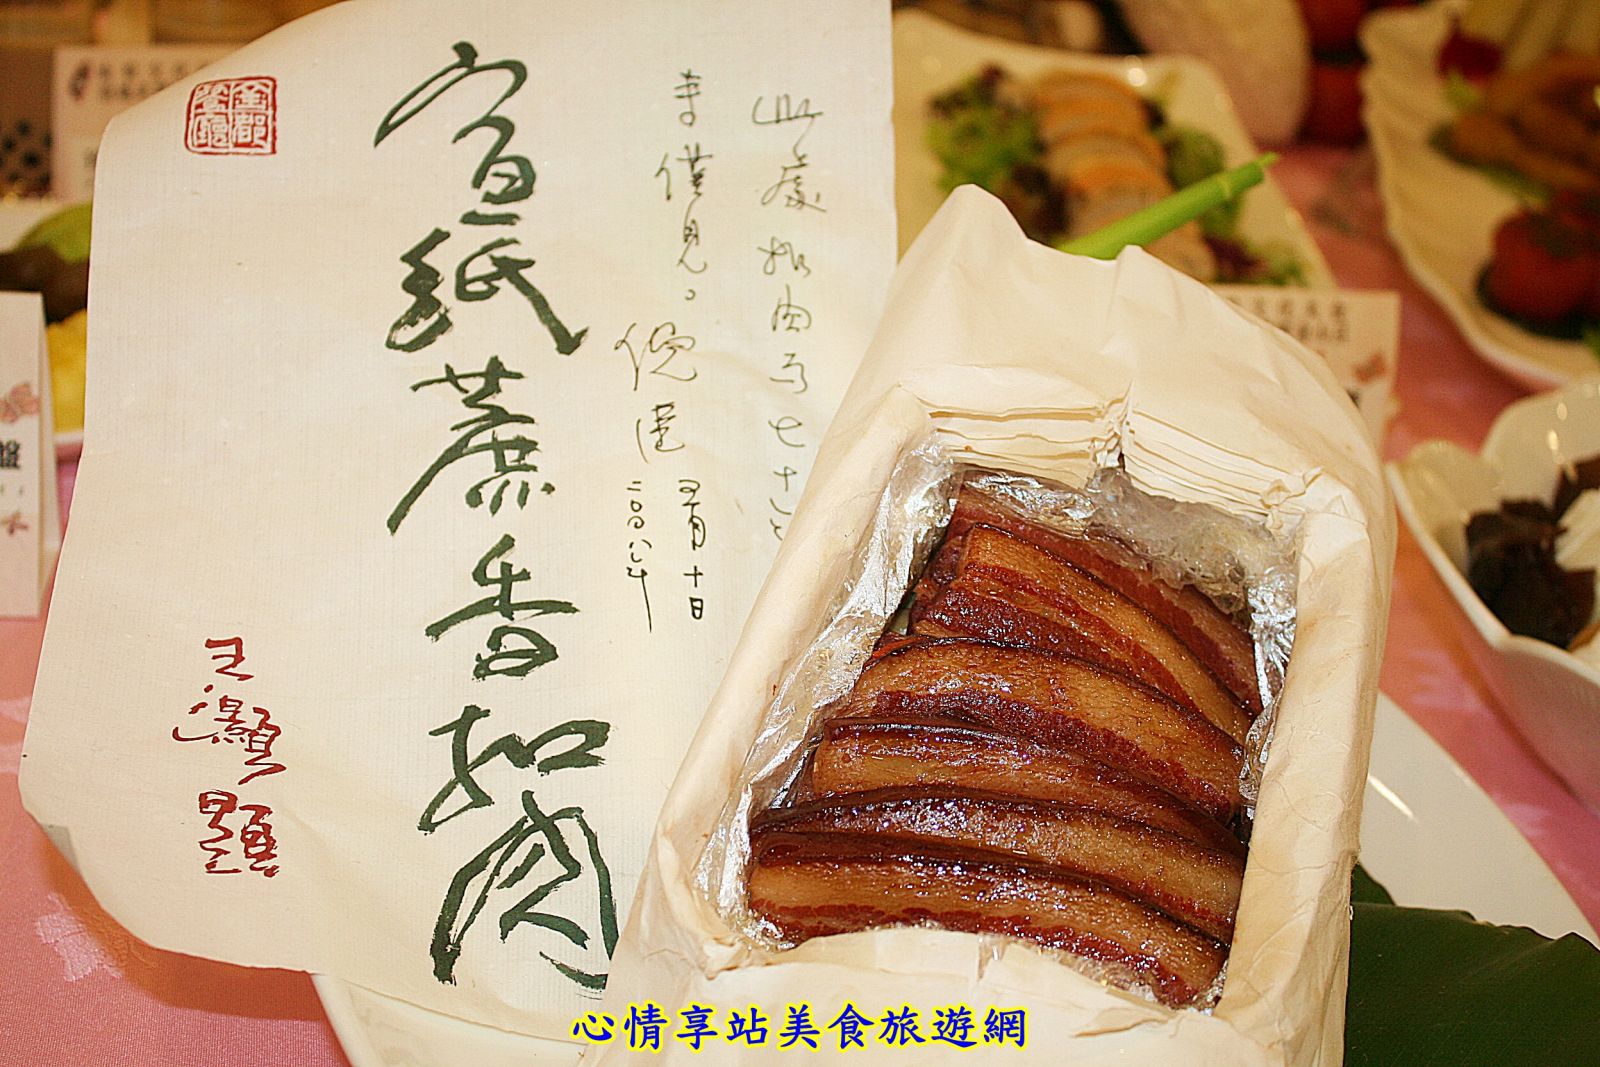 金都
餐廳
此處扣肉可七十七
幸僅見。倪匡 五月十日
二〇〇八年
宣紙蔗香扣肉
王灝題
盤
心情享站美食旅遊網